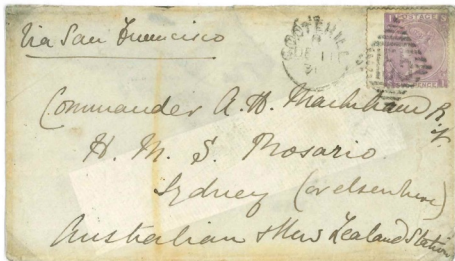 Via San Francisco
Commander A. H. Markham R.N.
H. M. S. Rosario
Sydney (or elsewhere)
Australian & New Zealand Station